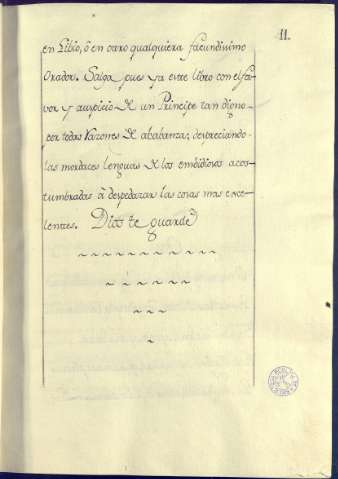 11.
en Libio, ô en otro qualquiera facundisimo
Orador. Salga pues ya este libro con el fa-
vor y auspicio de un Principe tan digno
por todas razones de alabanza, despreciando
las mordaces lenguas de los embidiosos acos-
tumbradas â despedazar las cosas mas exce-
lentes. Dios te guarde